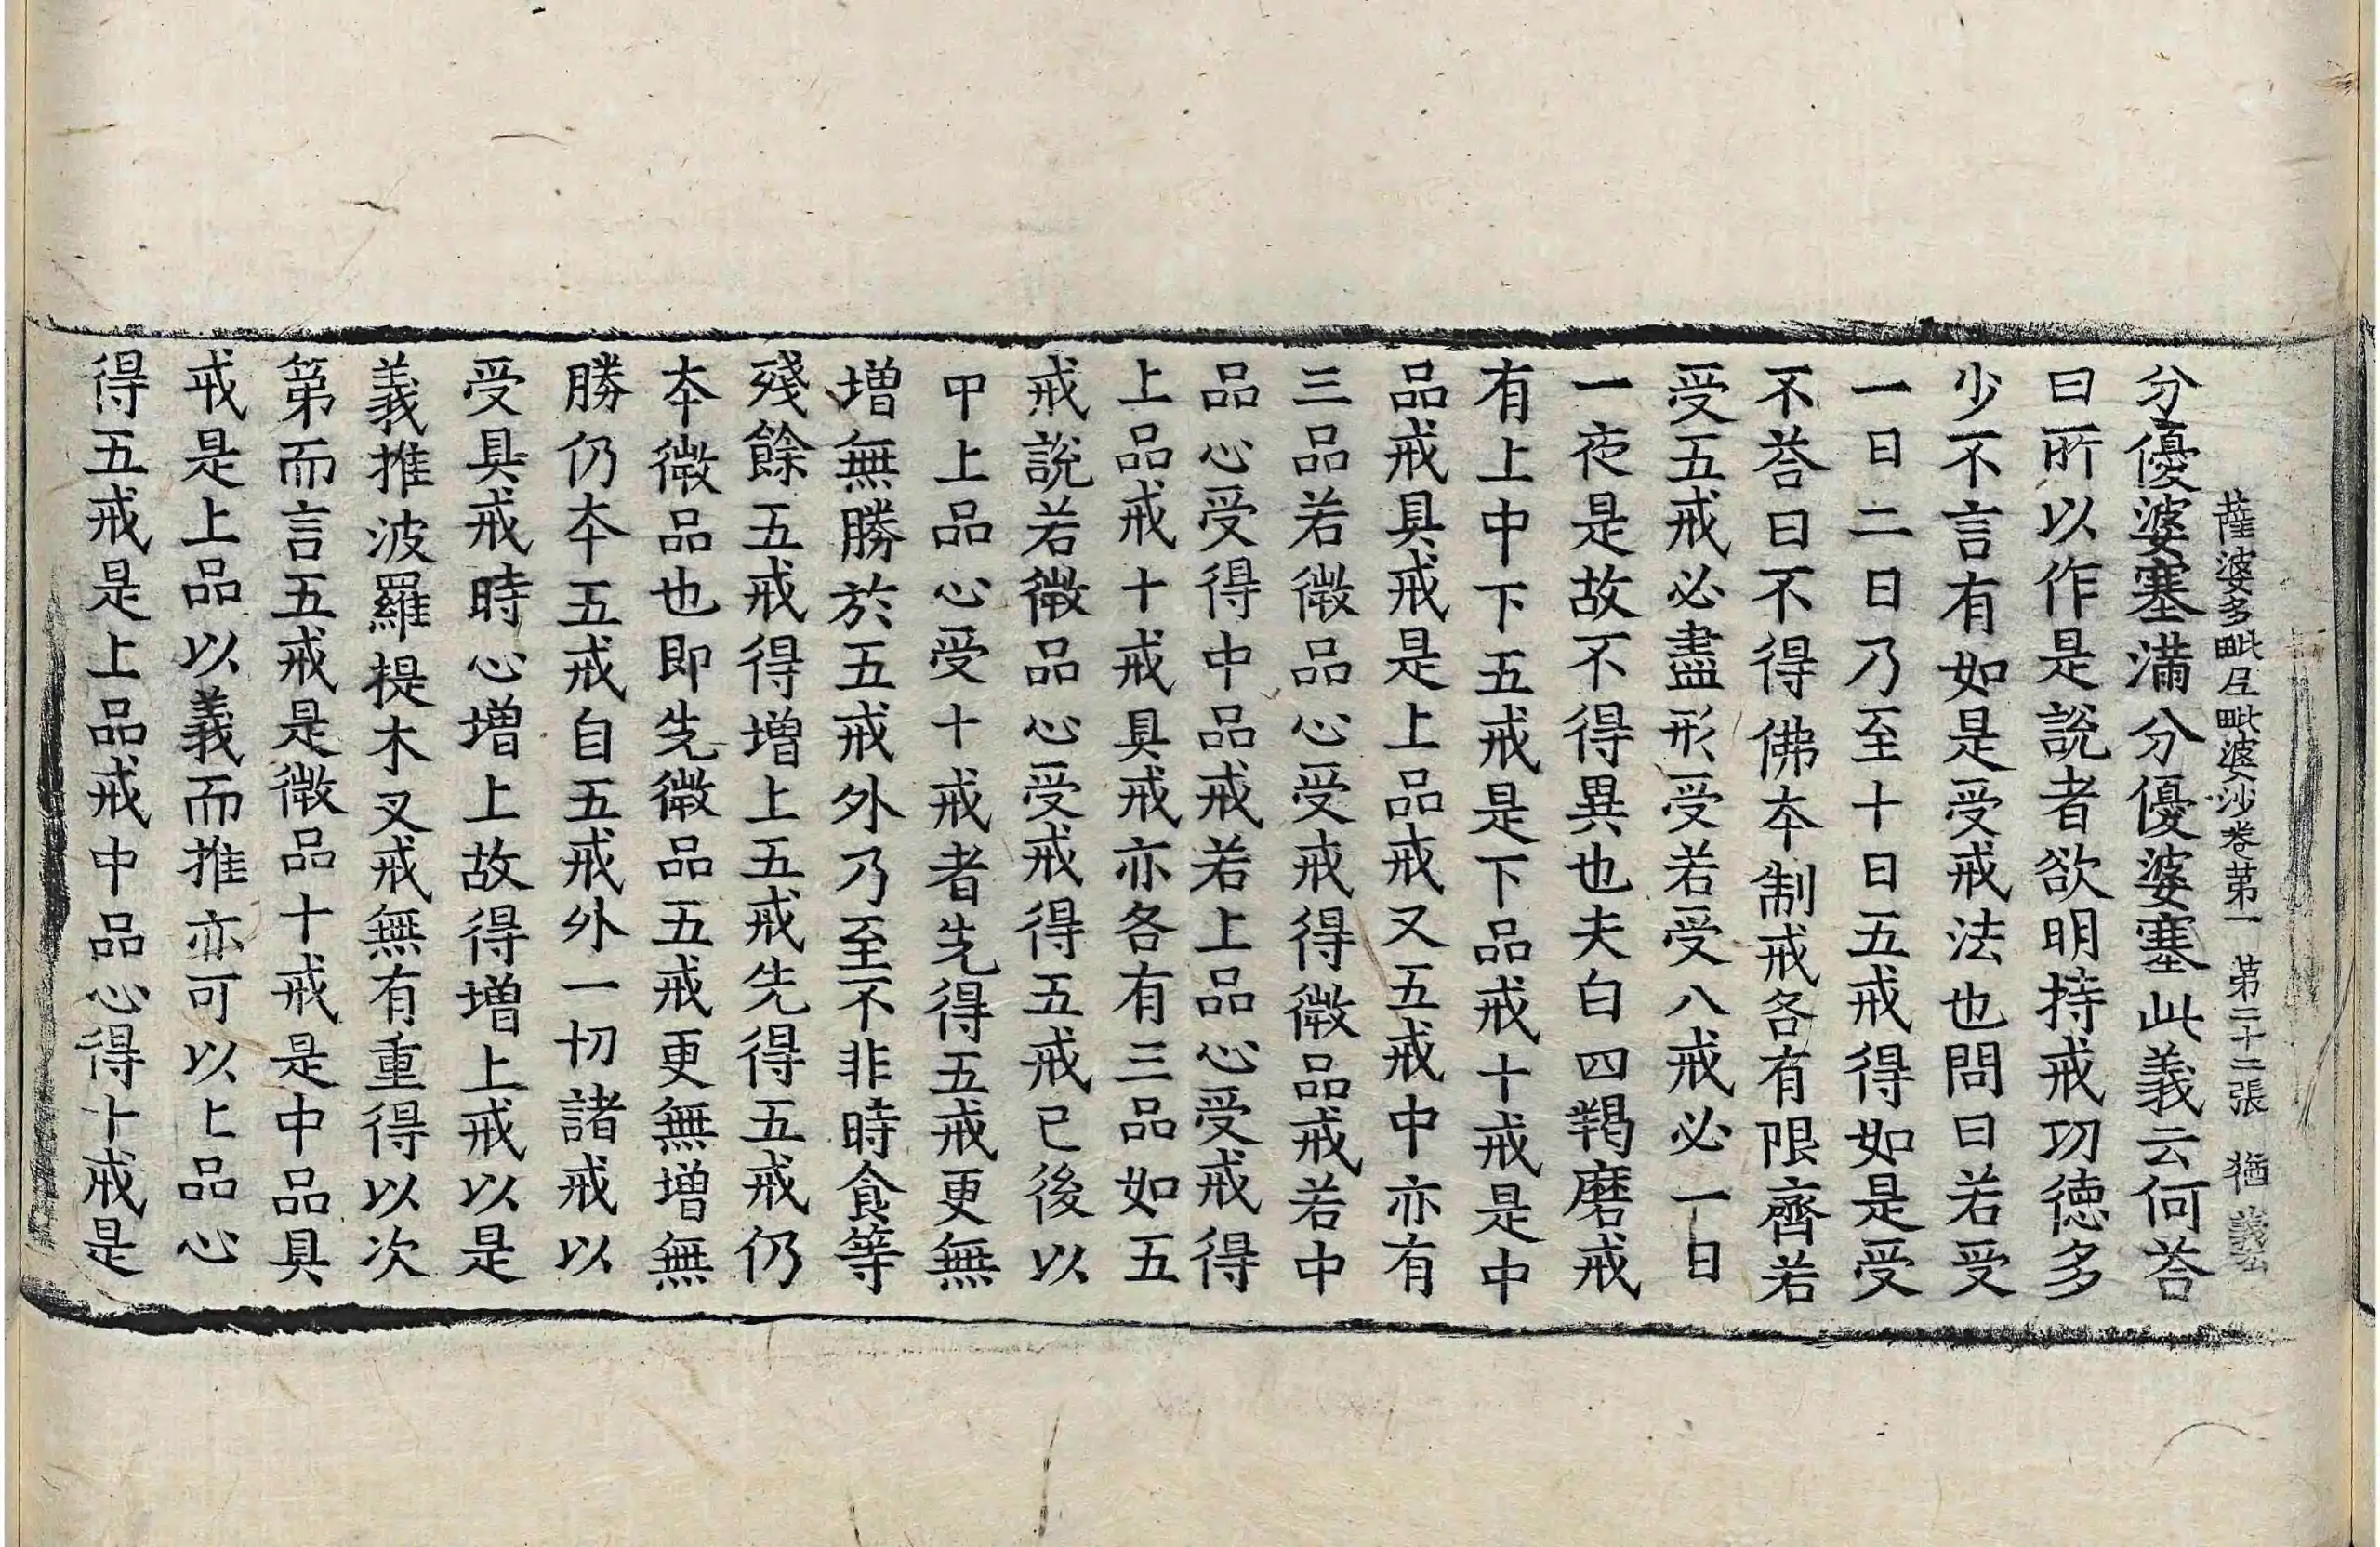 薩婆多毗尼毗婆沙卷第一 第二十二張 猶
分優婆塞滿分優婆塞此義云何荅
曰所以作是說者欲明持戒功德多
少不言有如是受戒法也問曰若受
一日二日乃至十日五戒得如是受
不荅曰不得佛本制戒各有限齊若
受五戒必盡形受若受八戒必一日
一夜是故不得異也夫白四羯磨戒
有上中下五戒是下品戒十戒是中
品戒具戒是上品戒又五戒中亦有
三品若微品心受戒得微品戒若中
品心受得中品戒若上品心受戒得
上品戒十戒具戒亦各有三品如五
戒說若微品心受戒得五戒已後以
中上品心受十戒者先得五戒更無
增無勝於五戒外乃至不非時食等
殘餘五戒得增上五戒先得五戒仍
本微品也即先微品五戒更無增無
勝仍本五戒自五戒外一切諸戒以
受具戒時心增上故得增上戒以是
義推波羅提木叉戒無有重得以次
第而言五戒是微品十戒是中品具
戒是上品以義而推亦可以上品心
得五戒是上品戒中品心得十戒是